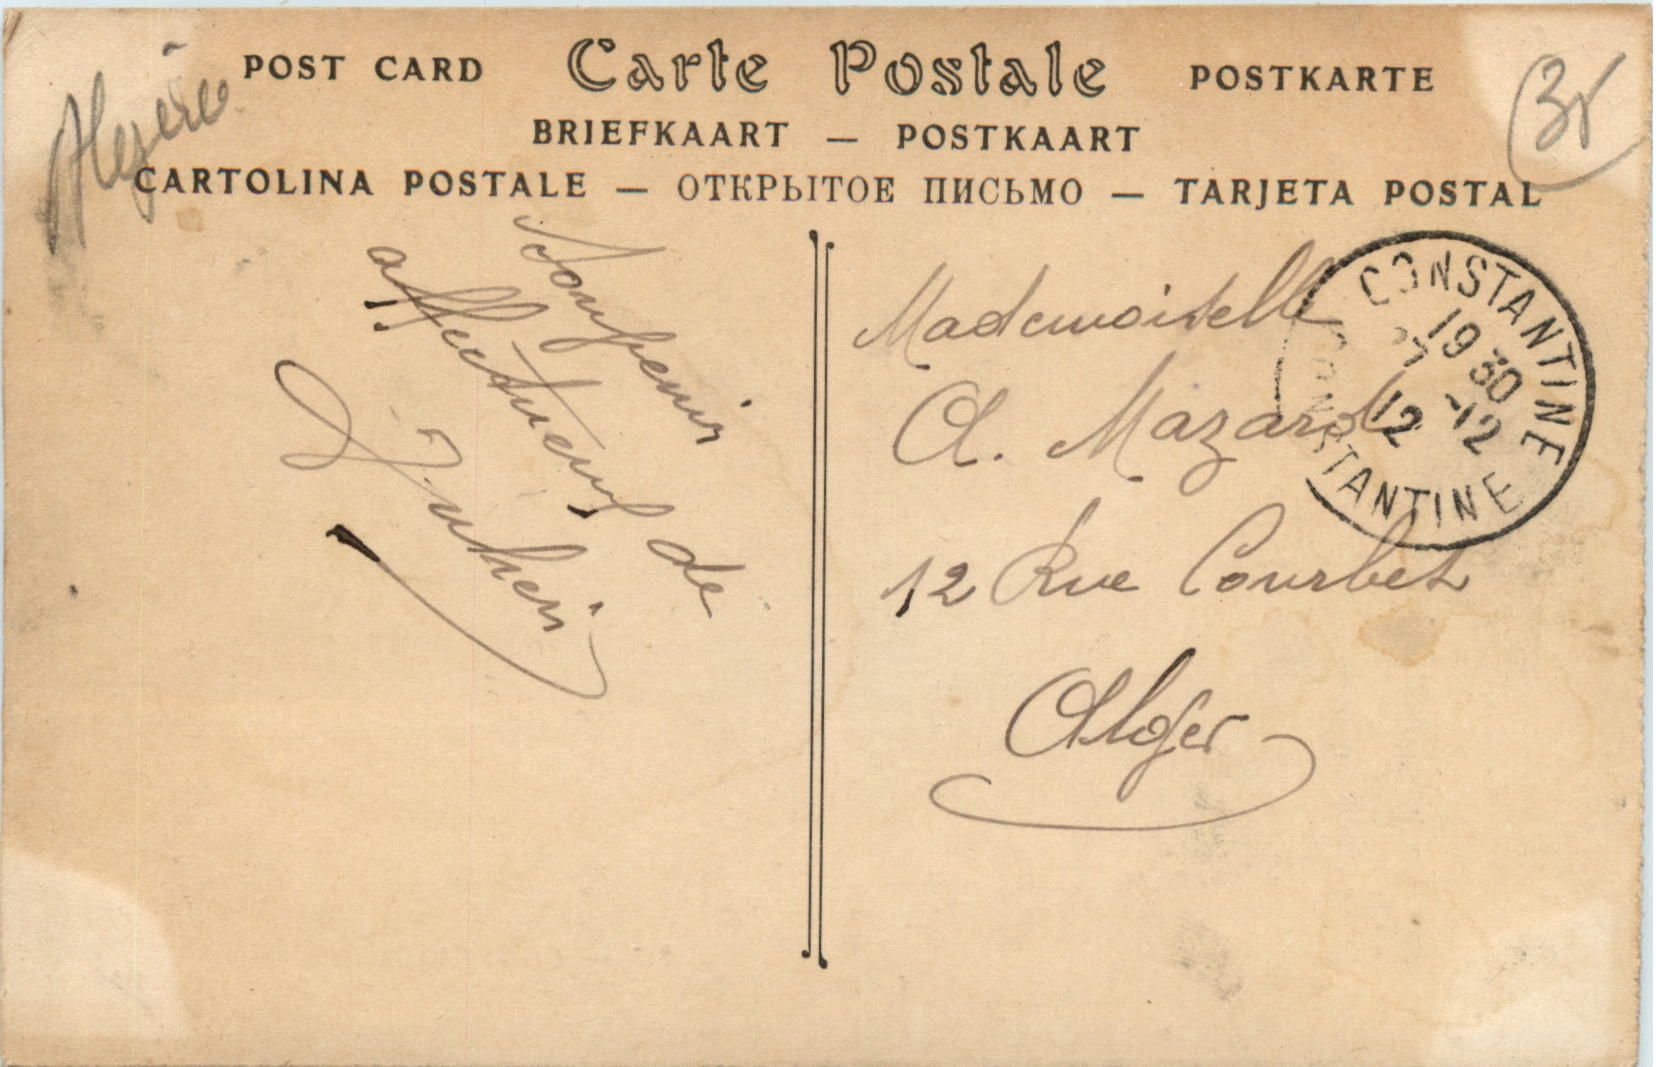 Algérie
POST CARD Carte Postale POSTKARTE
BRIEFKAART — POSTKAART
CARTOLINA POSTALE — ОТКРЫТОЕ ПИСЬМО — TARJETA POSTAL
Souvenir
affectueux de
CONSTANTINE
19 30
7 -12
12
CONSTANTINE
Mademoiselle
A. Mazard
12 Rue Courbet
Alger